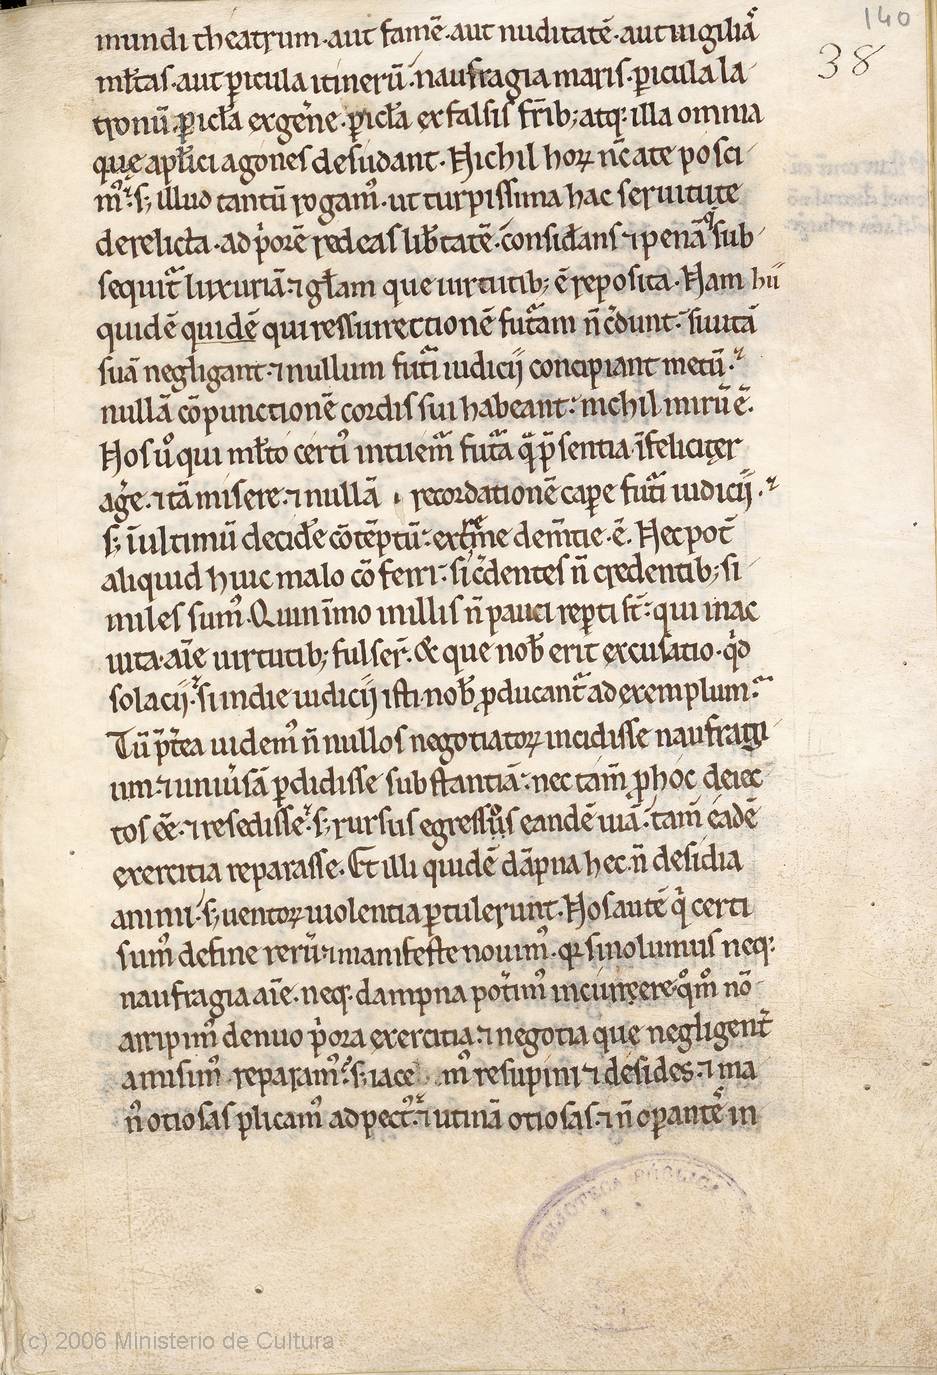 140
38
mundi theatrum. aut famē. aut nuditatē. aut uigiliā
ml̄tas. aut ꝑicula itinerū. naufragia maris. ꝑicula la
tronū. ꝑicl̄a ex gen̄e. ꝑicl̄a ex falsis fr̄ib; atq; illa omnia
quę apl̄ici agones desudant. Nichil hoꝝ n̄c a te posci
mꝰ. s; illud tantū rogamꝰ. ut turpissima hac seruitute
derelicta. ad p̓orē redeas lib̄tatē. c̄nsid̄ans ⁊ penā sub
sequit̄ luxuriā. ⁊ gl̄am que uirtutib; ē reposita. Nam hii
quidē quidē qui ressurrectionē fut̄am n̄ c̄dunt. si uitā
suā negligant. ⁊ nullum fut̄i iudicij concipiant metū. ⁊
nullā cōpunctionē cordis sui habeant. nichil mirū ē.
Nos u̓o qui ml̄to certiꝰ intuem̄ fut̄a q̄ p̄sentia īfeliciter
ag̓e. ⁊ tā misere. ⁊ nullā recordationē cape fut̄i iudicij. ⁊
s; ī ultimū decid̄e cōtēptū. ext̄me dem̄tie. ē. Nec pot̄
aliquid huic malo cōferri. si c̄dentes n̄ credentib; si
miles sumꝰ. Quin īmo in illis n̄ pauci repti st̄. qui in ac
uita. aīe uirtutib; fulser̄. & que nob̄ erit excusatio. q̓d
solacij. si in die iudicij isti nob̄ ꝓducant̄ ad exemplum.
Tū p̄t̄ea uidemꝰ n̄ nullos negotiatoꝝ incidisse naufragi
um. ⁊ uniu̓sā ꝑdidisse substantiā. nec tam̄ ꝓ hoc deiec
tos eē. ⁊ resedisse. s; rursus egressos eandē uiā. tam̄ eadē
exercitia reparasse. Et illi quidē dāpna hec. n̄ desidia
animi. s; uentoꝝ uiolentia ꝑtulerunt. Nos autē q̓ certi
sumꝰ de fine rerū. ⁊ manifeste nouimꝰ. qꝛ si nolumus neq;
naufragia aīe. neq; dampna pot̓imꝰ incurrere. qͦmͦ nō
arripimꝰ denuo p̓ora exercitia. ⁊ negotia que negligent̓
amisimꝰ reparamꝰ. s; iace mꝰ resupini ⁊ desides. ⁊ ma
n̄ otiosas plicamꝰ ad pectꝰ. ⁊ utinā otiosas. ⁊ n̄ oꝑantē in
BIBLIOTECA PUBLICA
(c) 2006 Ministerio de Cultura